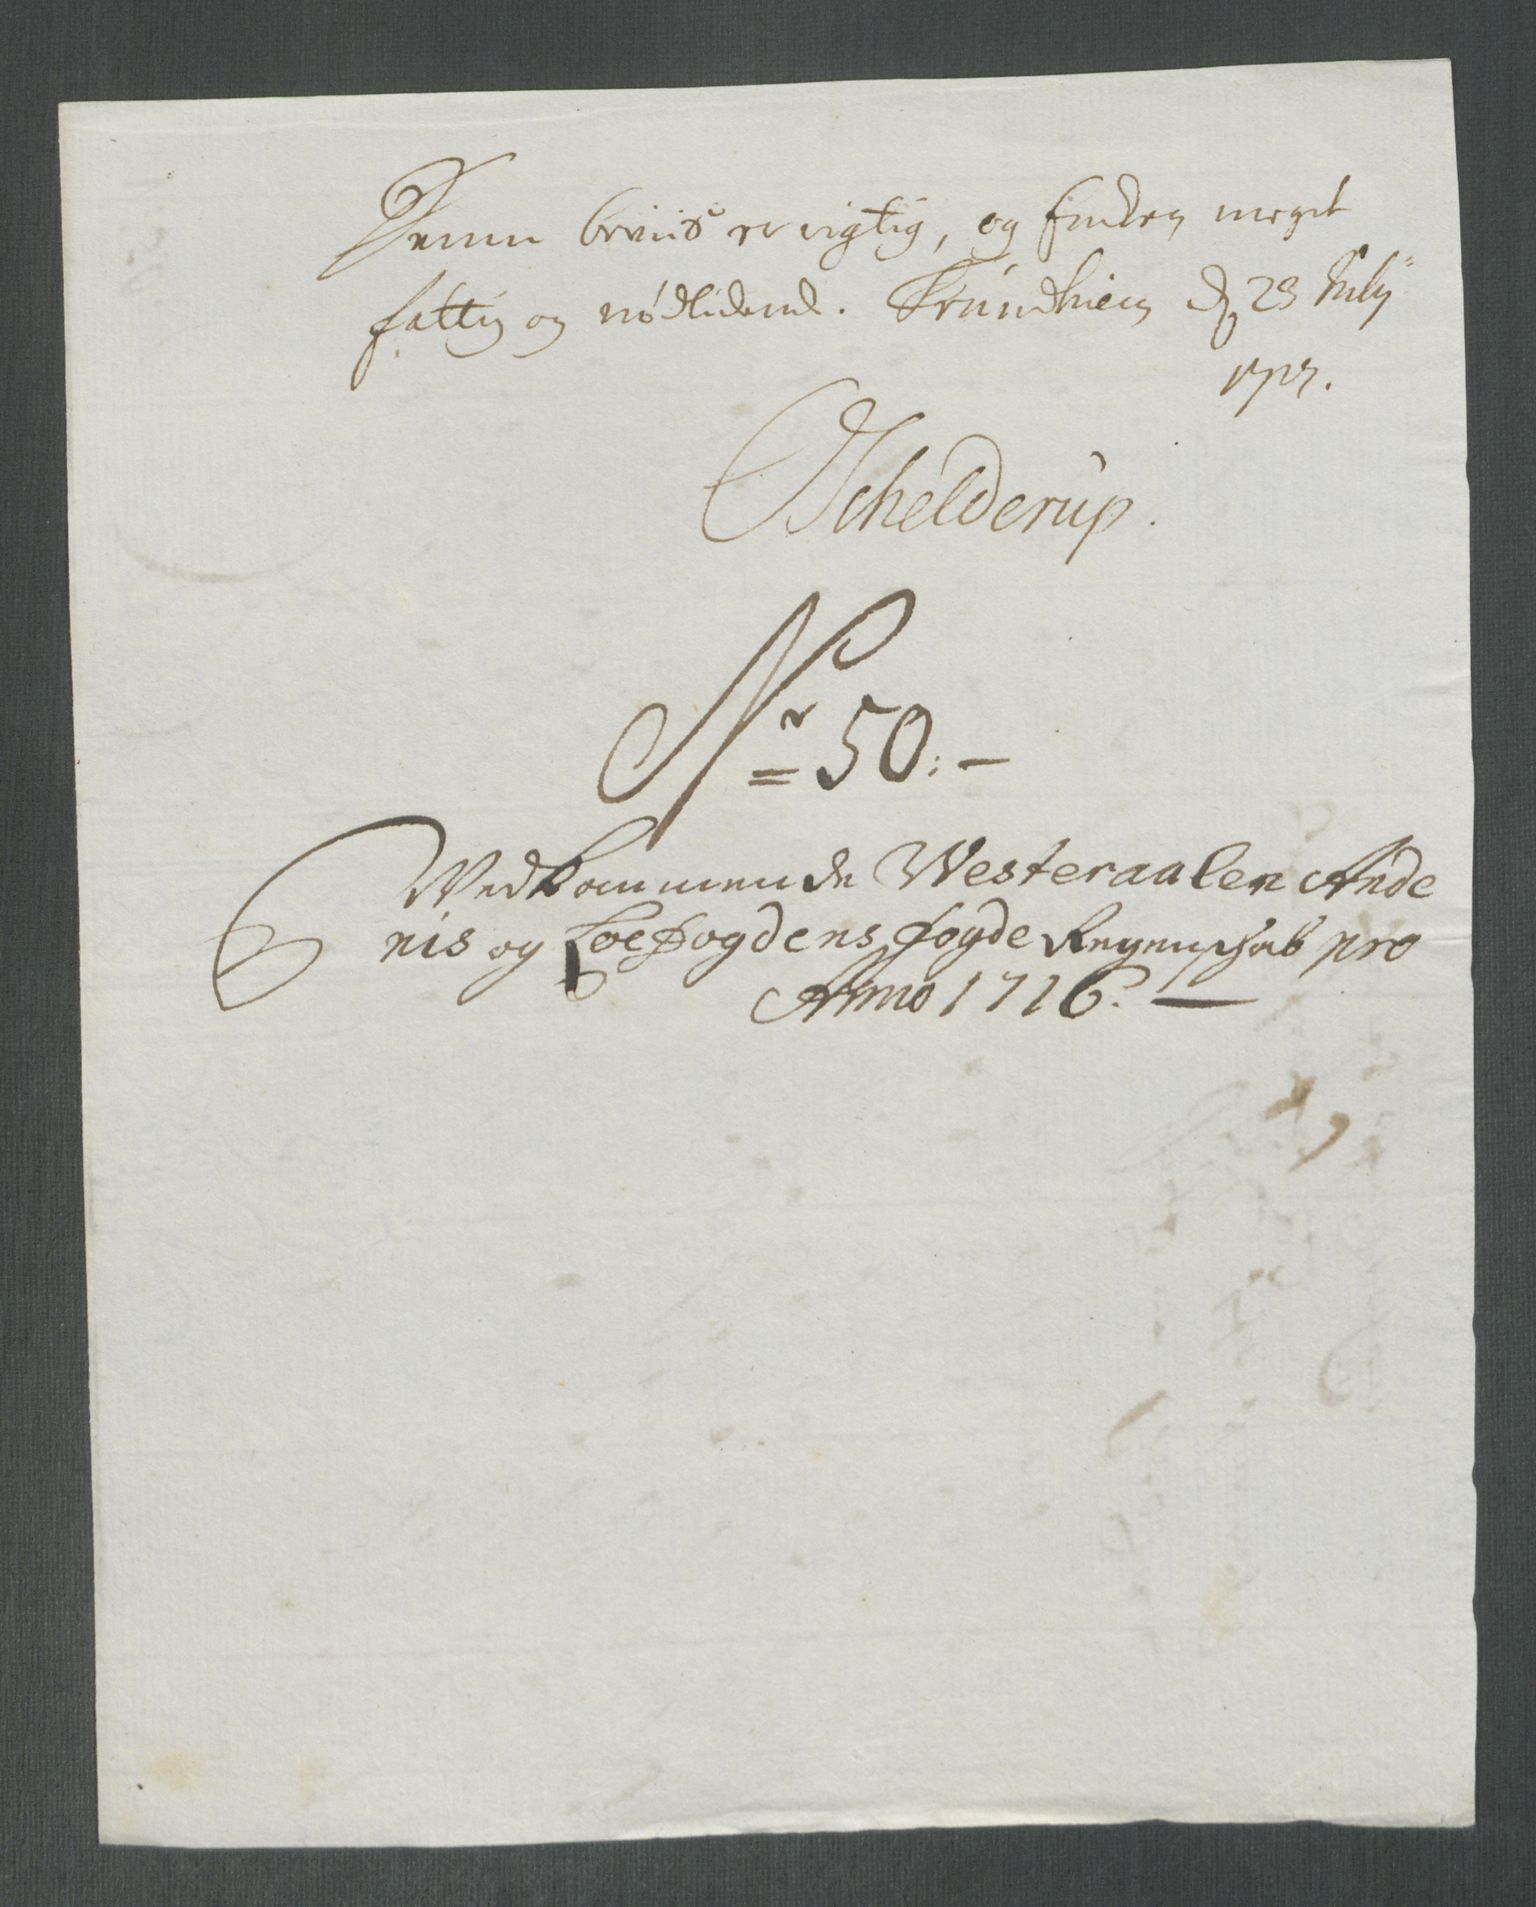 Denne beviis er rigtig, og Enken meget
fattig og nødlidende. Trundhiem d 23 July
1717.
Schelderup.
Nr 50. —
Vedkommende Westeraalen Ande
nis og Lofogdens fogde Regenschab pro
Anno 1716. —